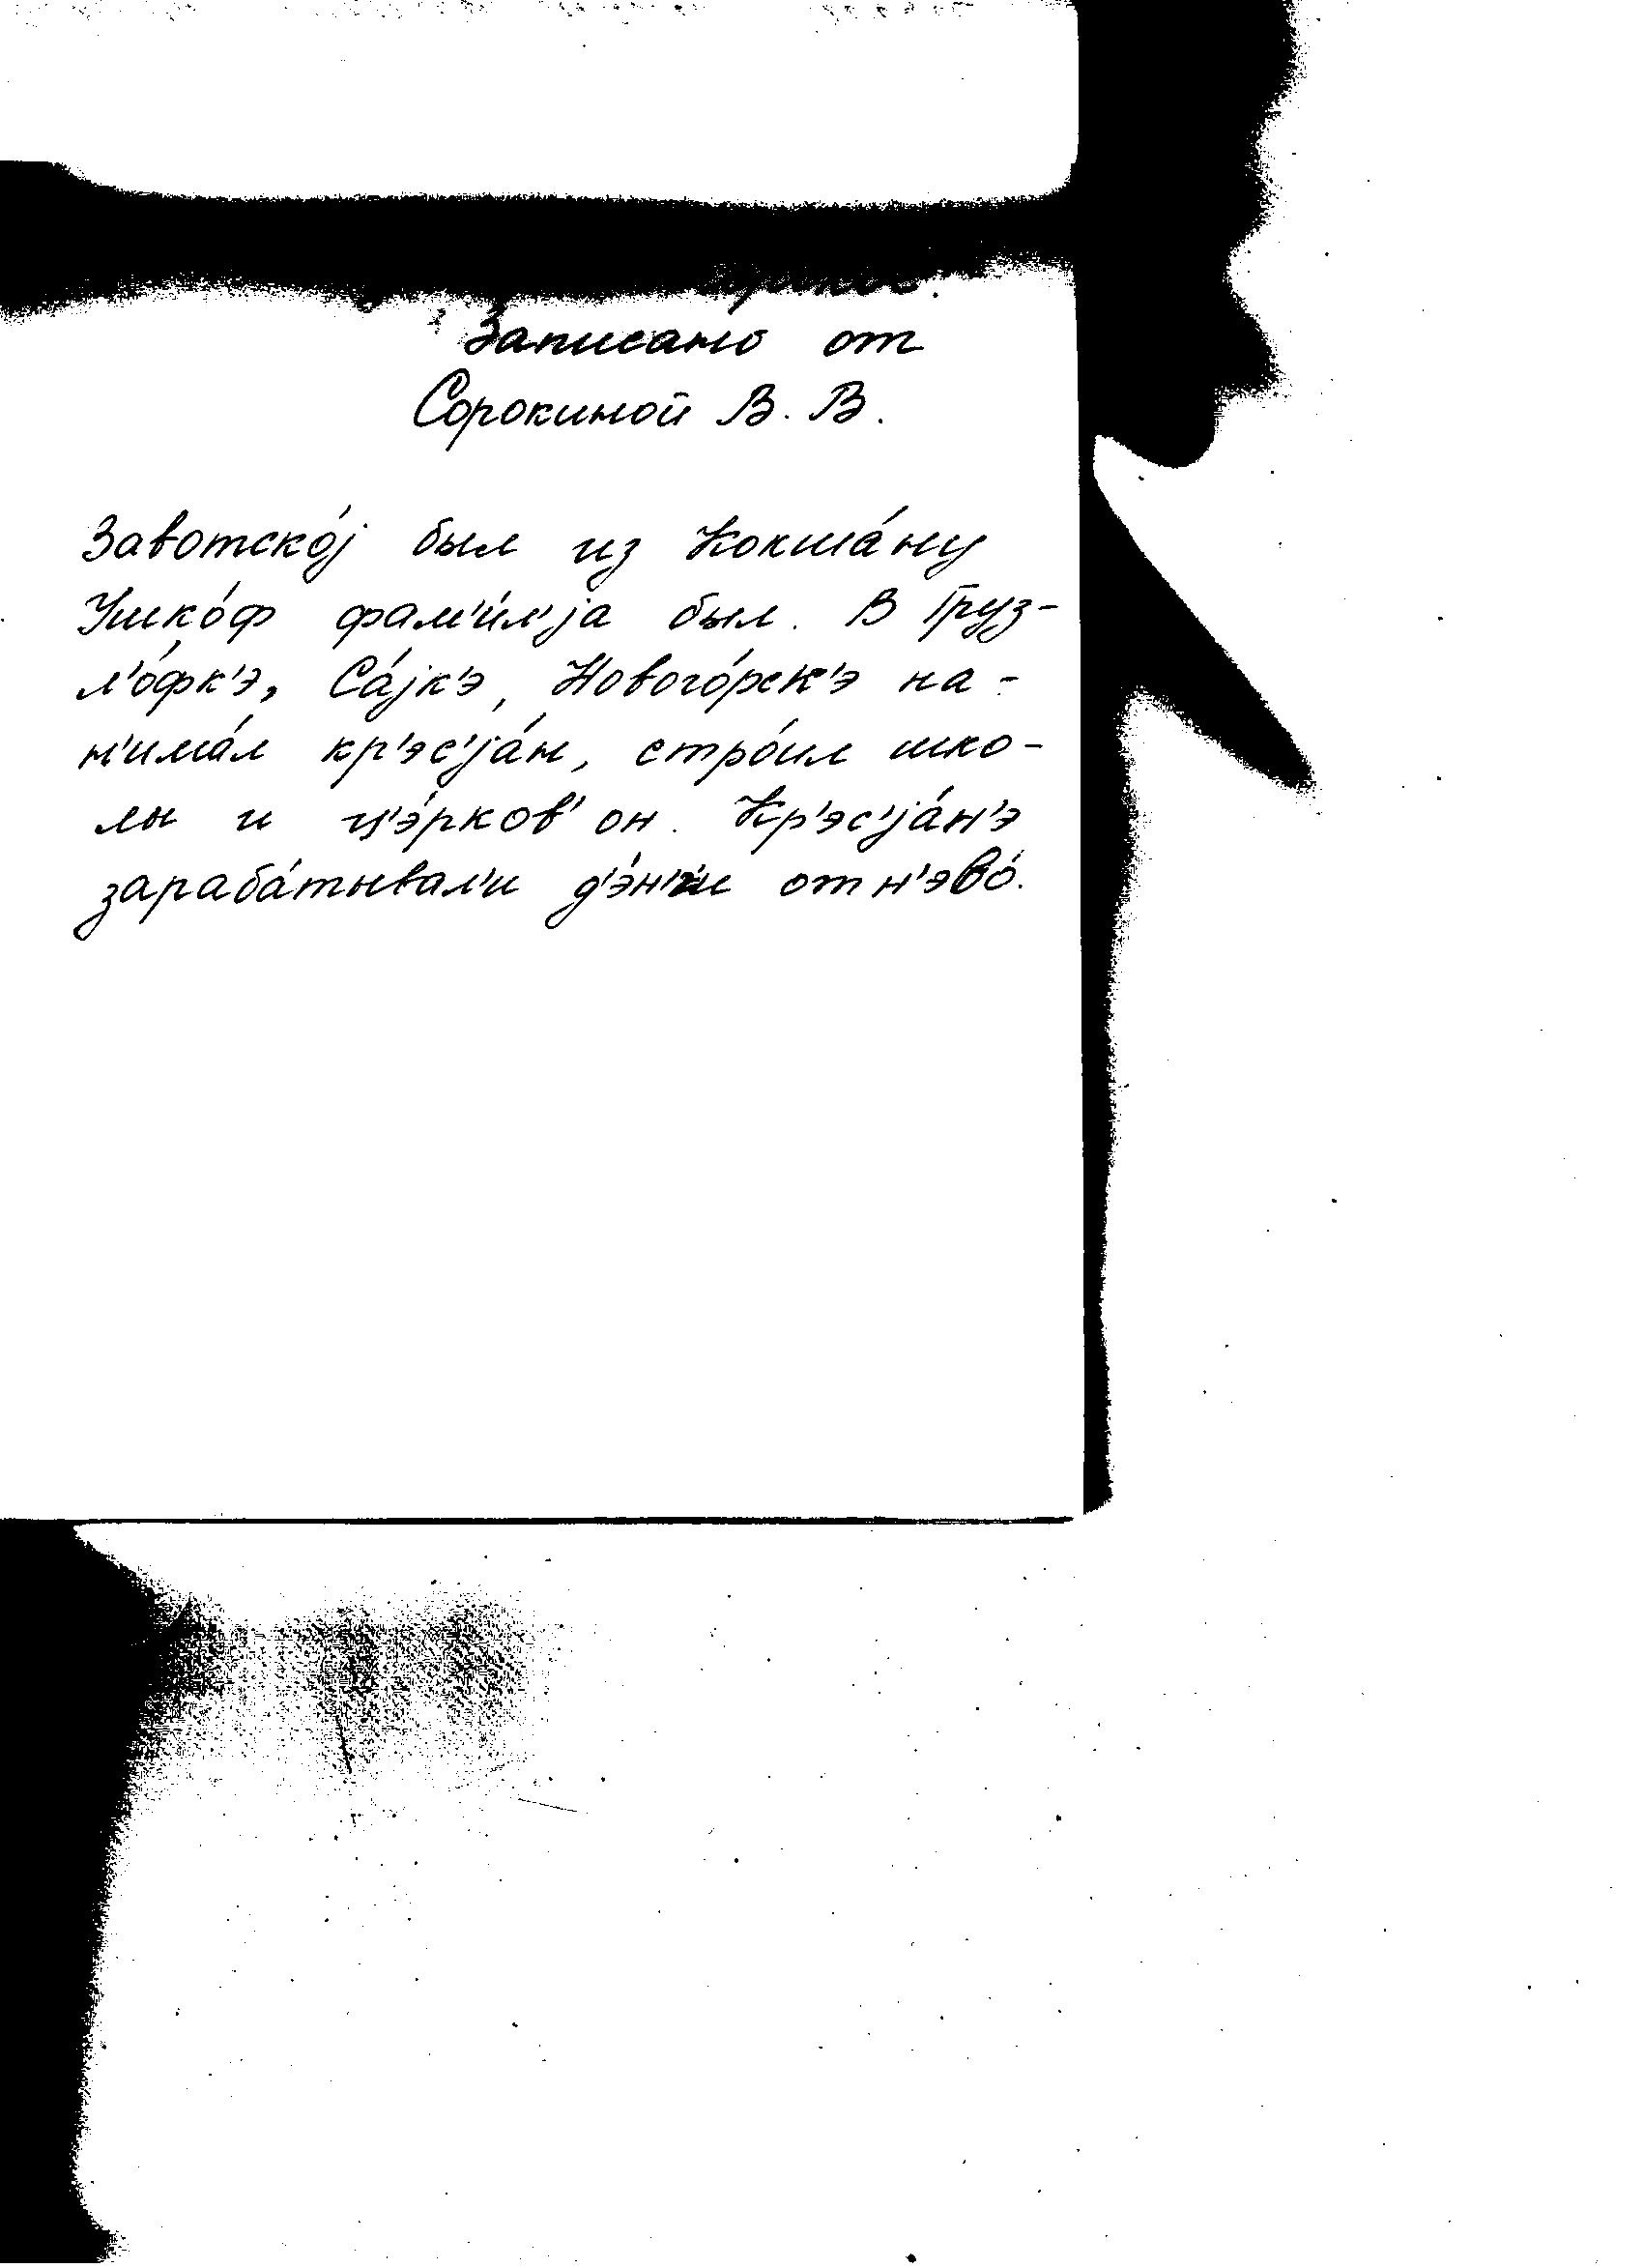 Записано от
Сорокиной В. В.
Завотско́j был из Кокша́ну
Ушко́ф фам'и́л'jа был. В Груз-
л'о́фк'э, Са́jк'э, Нового́рск'э на-
н'има́л кр'эс'jа́н, стро́ил шко-
лы и ц'э́рков' он. Кр'эс'jа́н'э
зараба́тывал'и д'э́н'г'и от н'эво́.